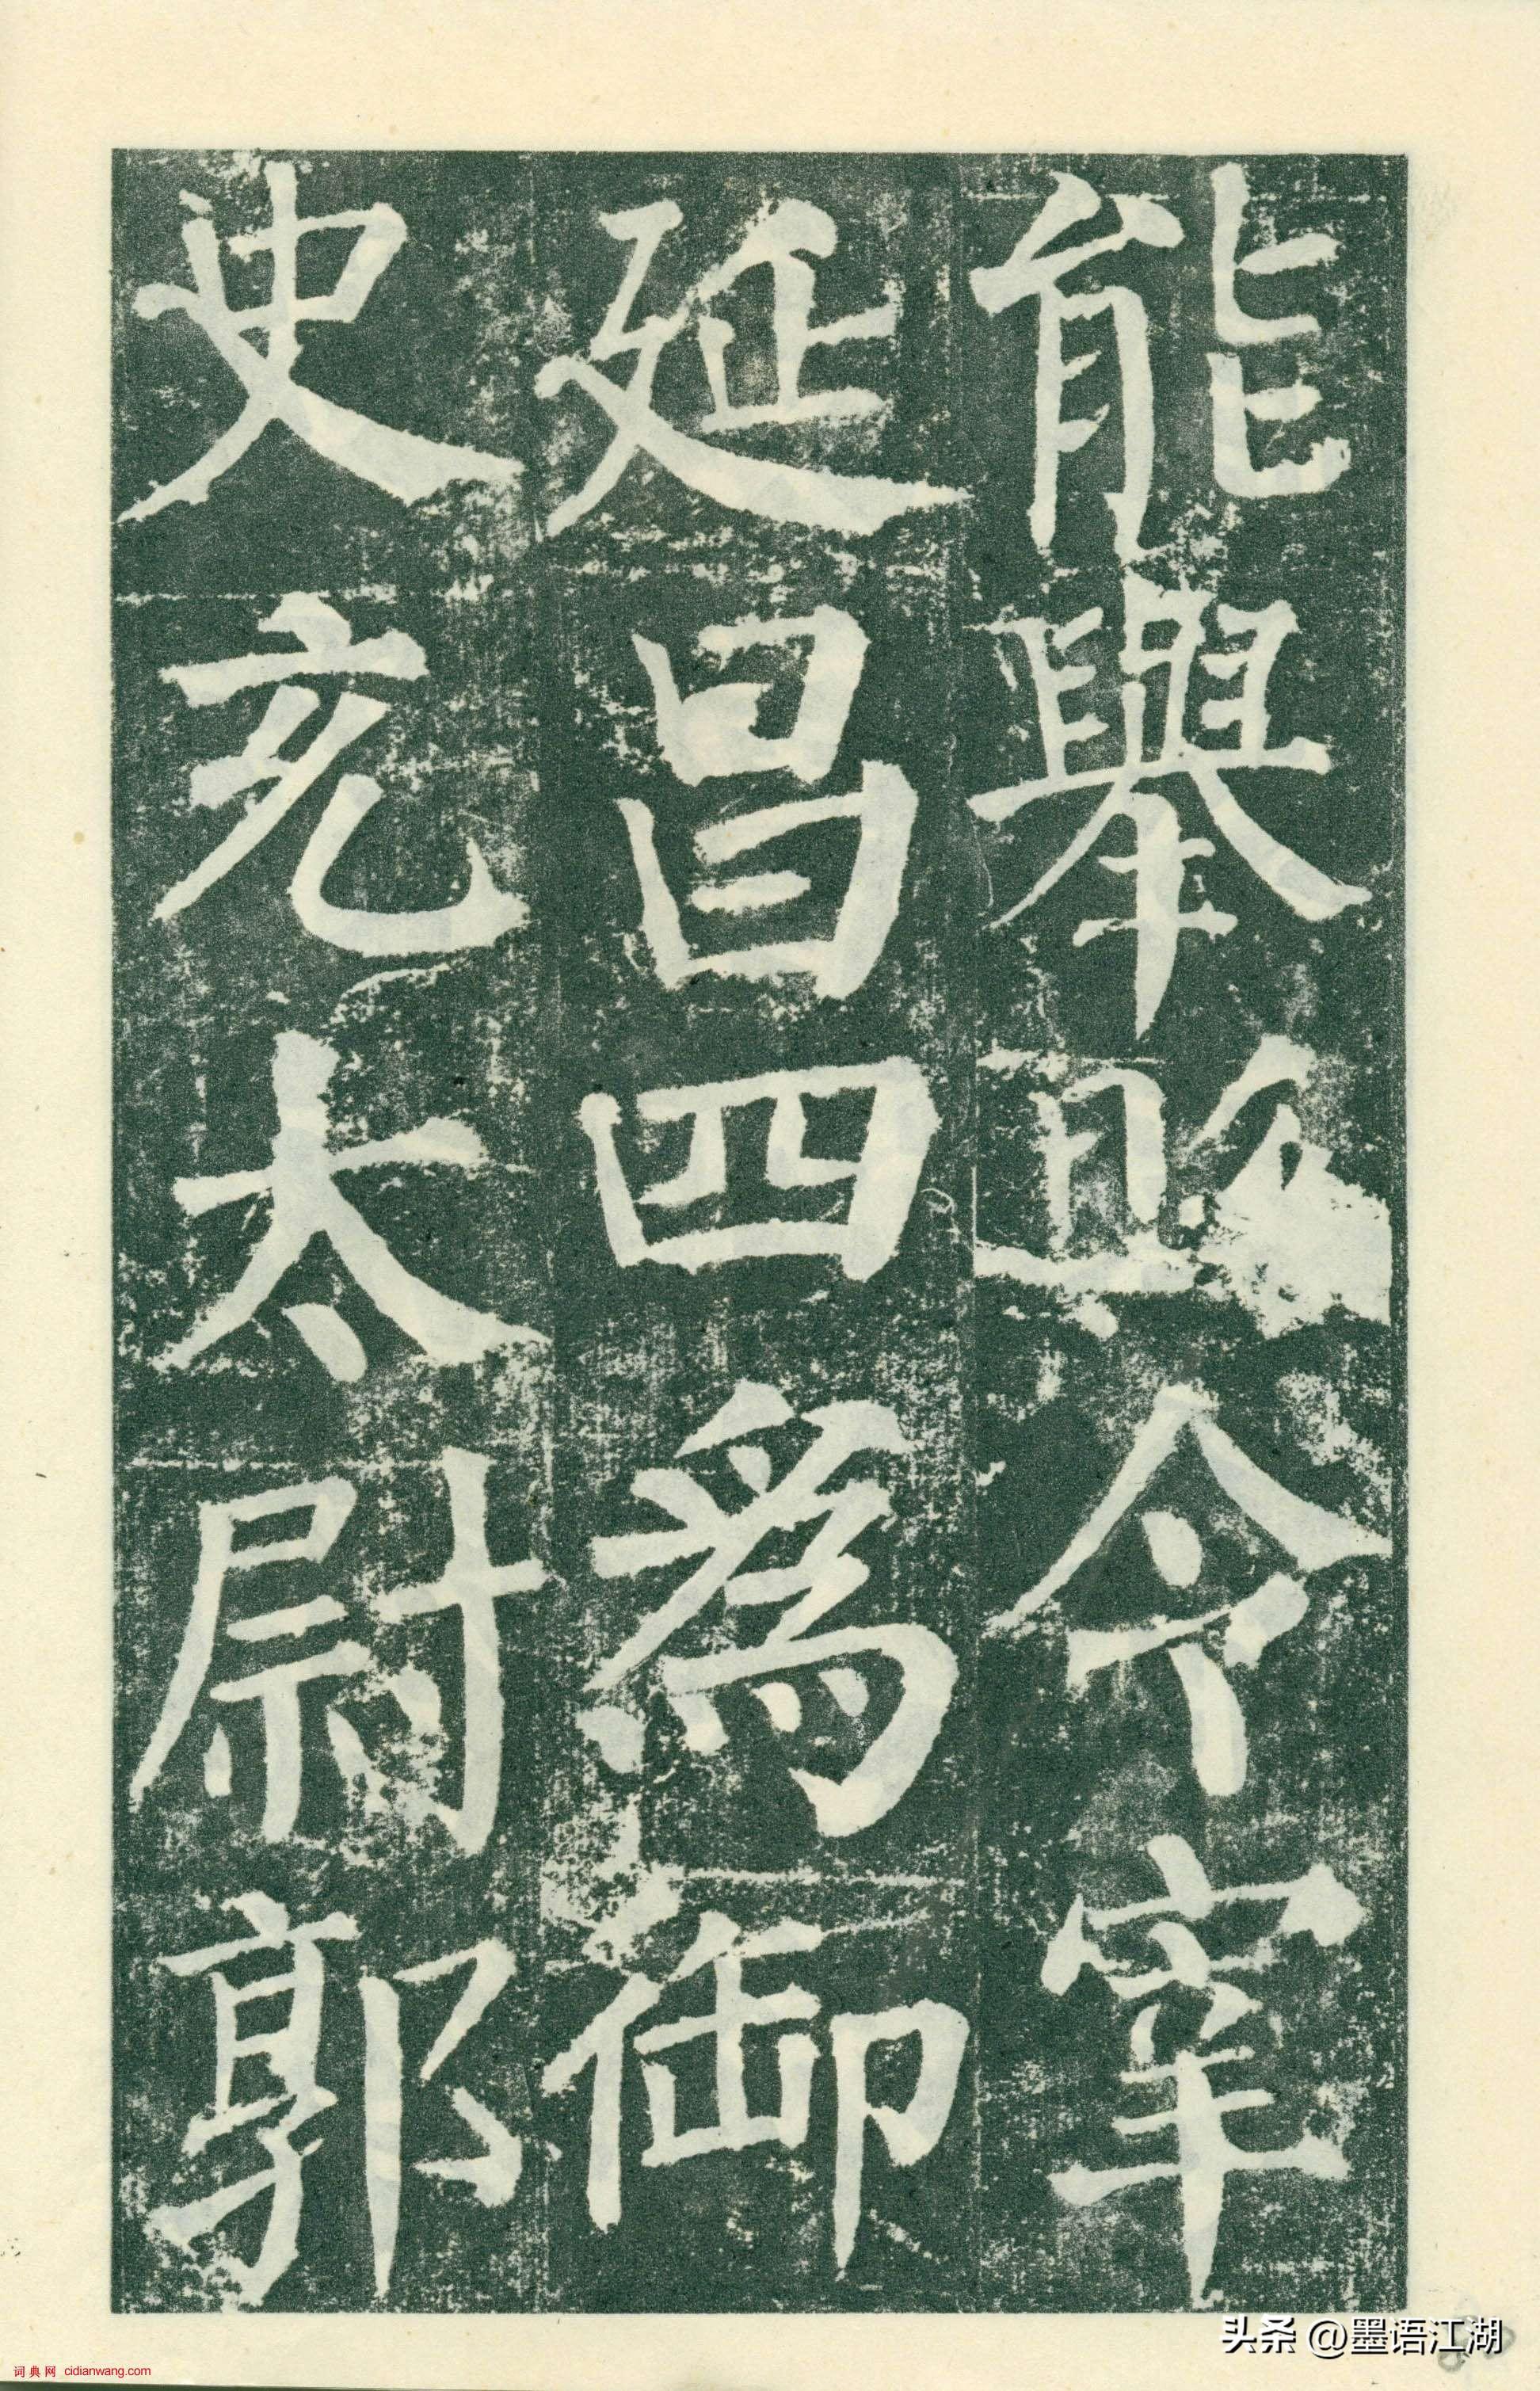 能舉今宰
延昌四爲御
史充太尉郭
头条 @墨语江湖
词典网 cidianwang.com